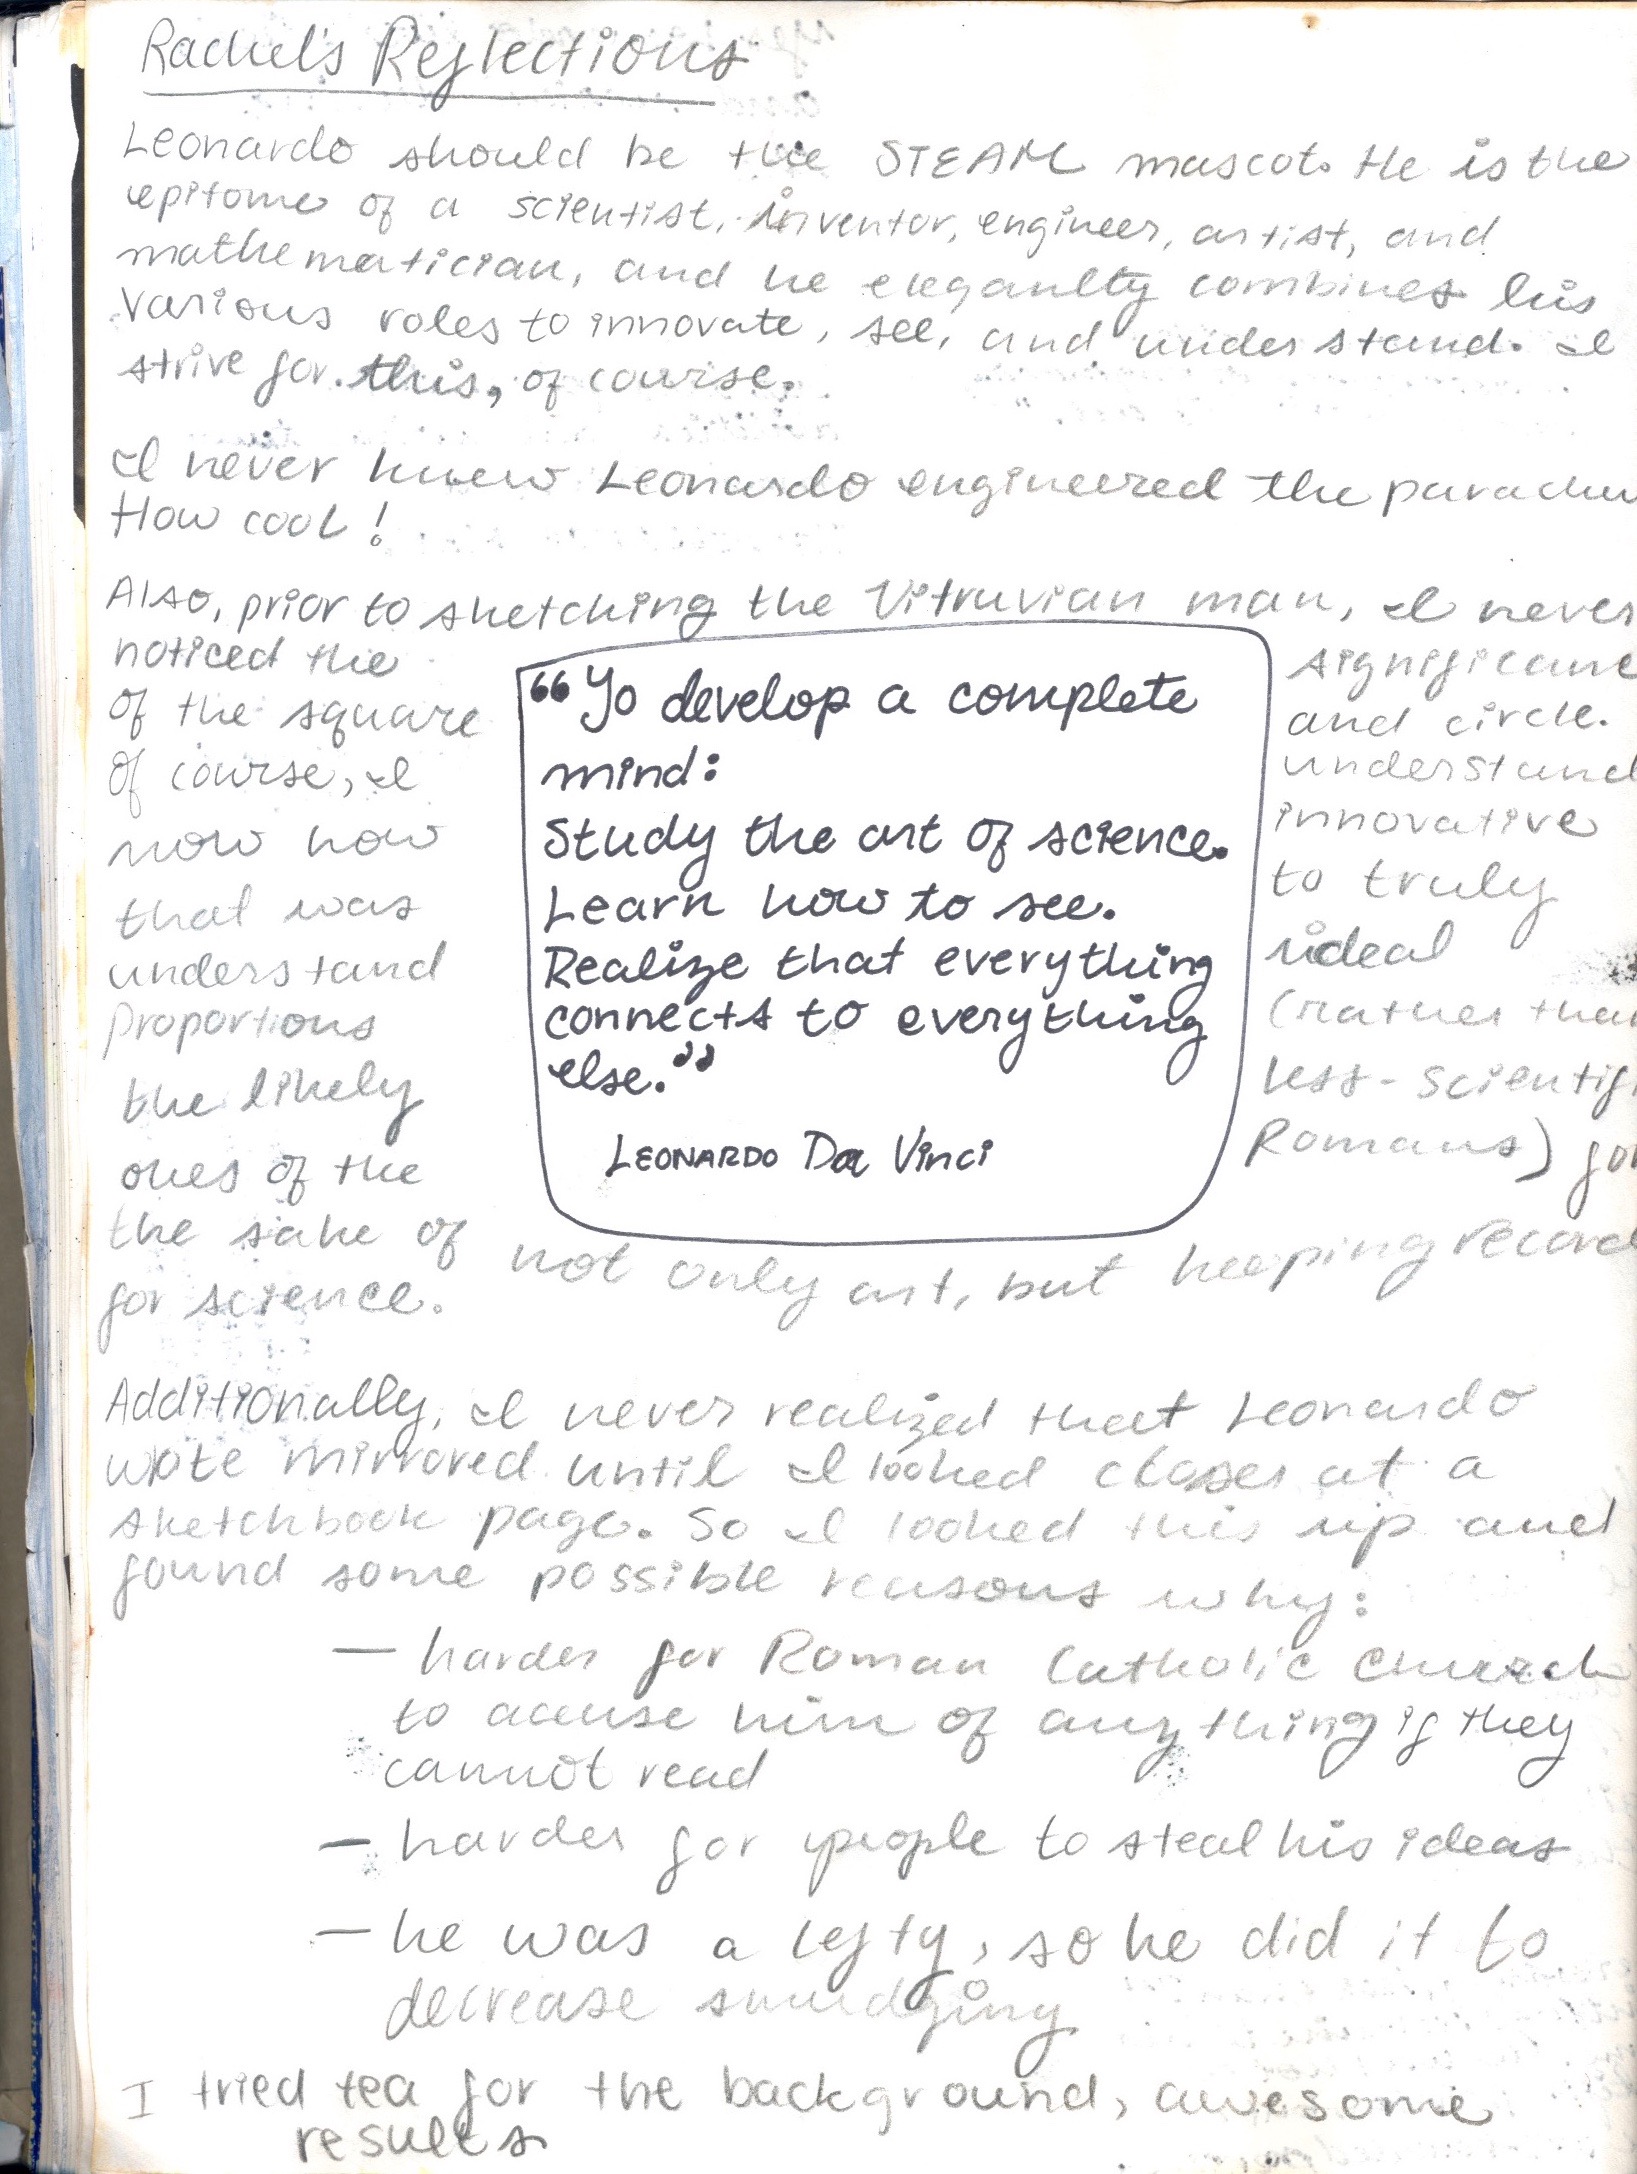 Rachel's Reflections
Leonardo should be the STEAM mascot. He is the
epitome of a scientist, inventor, engineer, artist, and
mathematician, and he elegantly combines his
various roles to innovate, see, and understand. I
strive for this, of course.
I never knew Leonardo engineered the parachu
How cool!
Also, prior to sketching the Vitruvian man, I never
noticed the significanc
of the square and circle.
Of course, I understand
now how innovative
that was to truly
understand ideal
proportions (rather than
the likely less-scientifi
ones of the Romans) for
the sake of not only art, but keeping record
for science.
"To develop a complete
mind:
Study the art of science.
Learn how to see.
Realize that everything
connects to everything
else."
LEONARDO Da Vinci
Additionally, I never realized that Leonardo
wrote mirrored until I looked closer at a
sketchbook page. So I looked this up and
found some possible reasons why:
— harder for Roman Catholic Church
to accuse him of anything if they
cannot read
— harder for people to steal his ideas
— he was a lefty, so he did it to
decrease smudging
I tried tea for the background, awesome
results